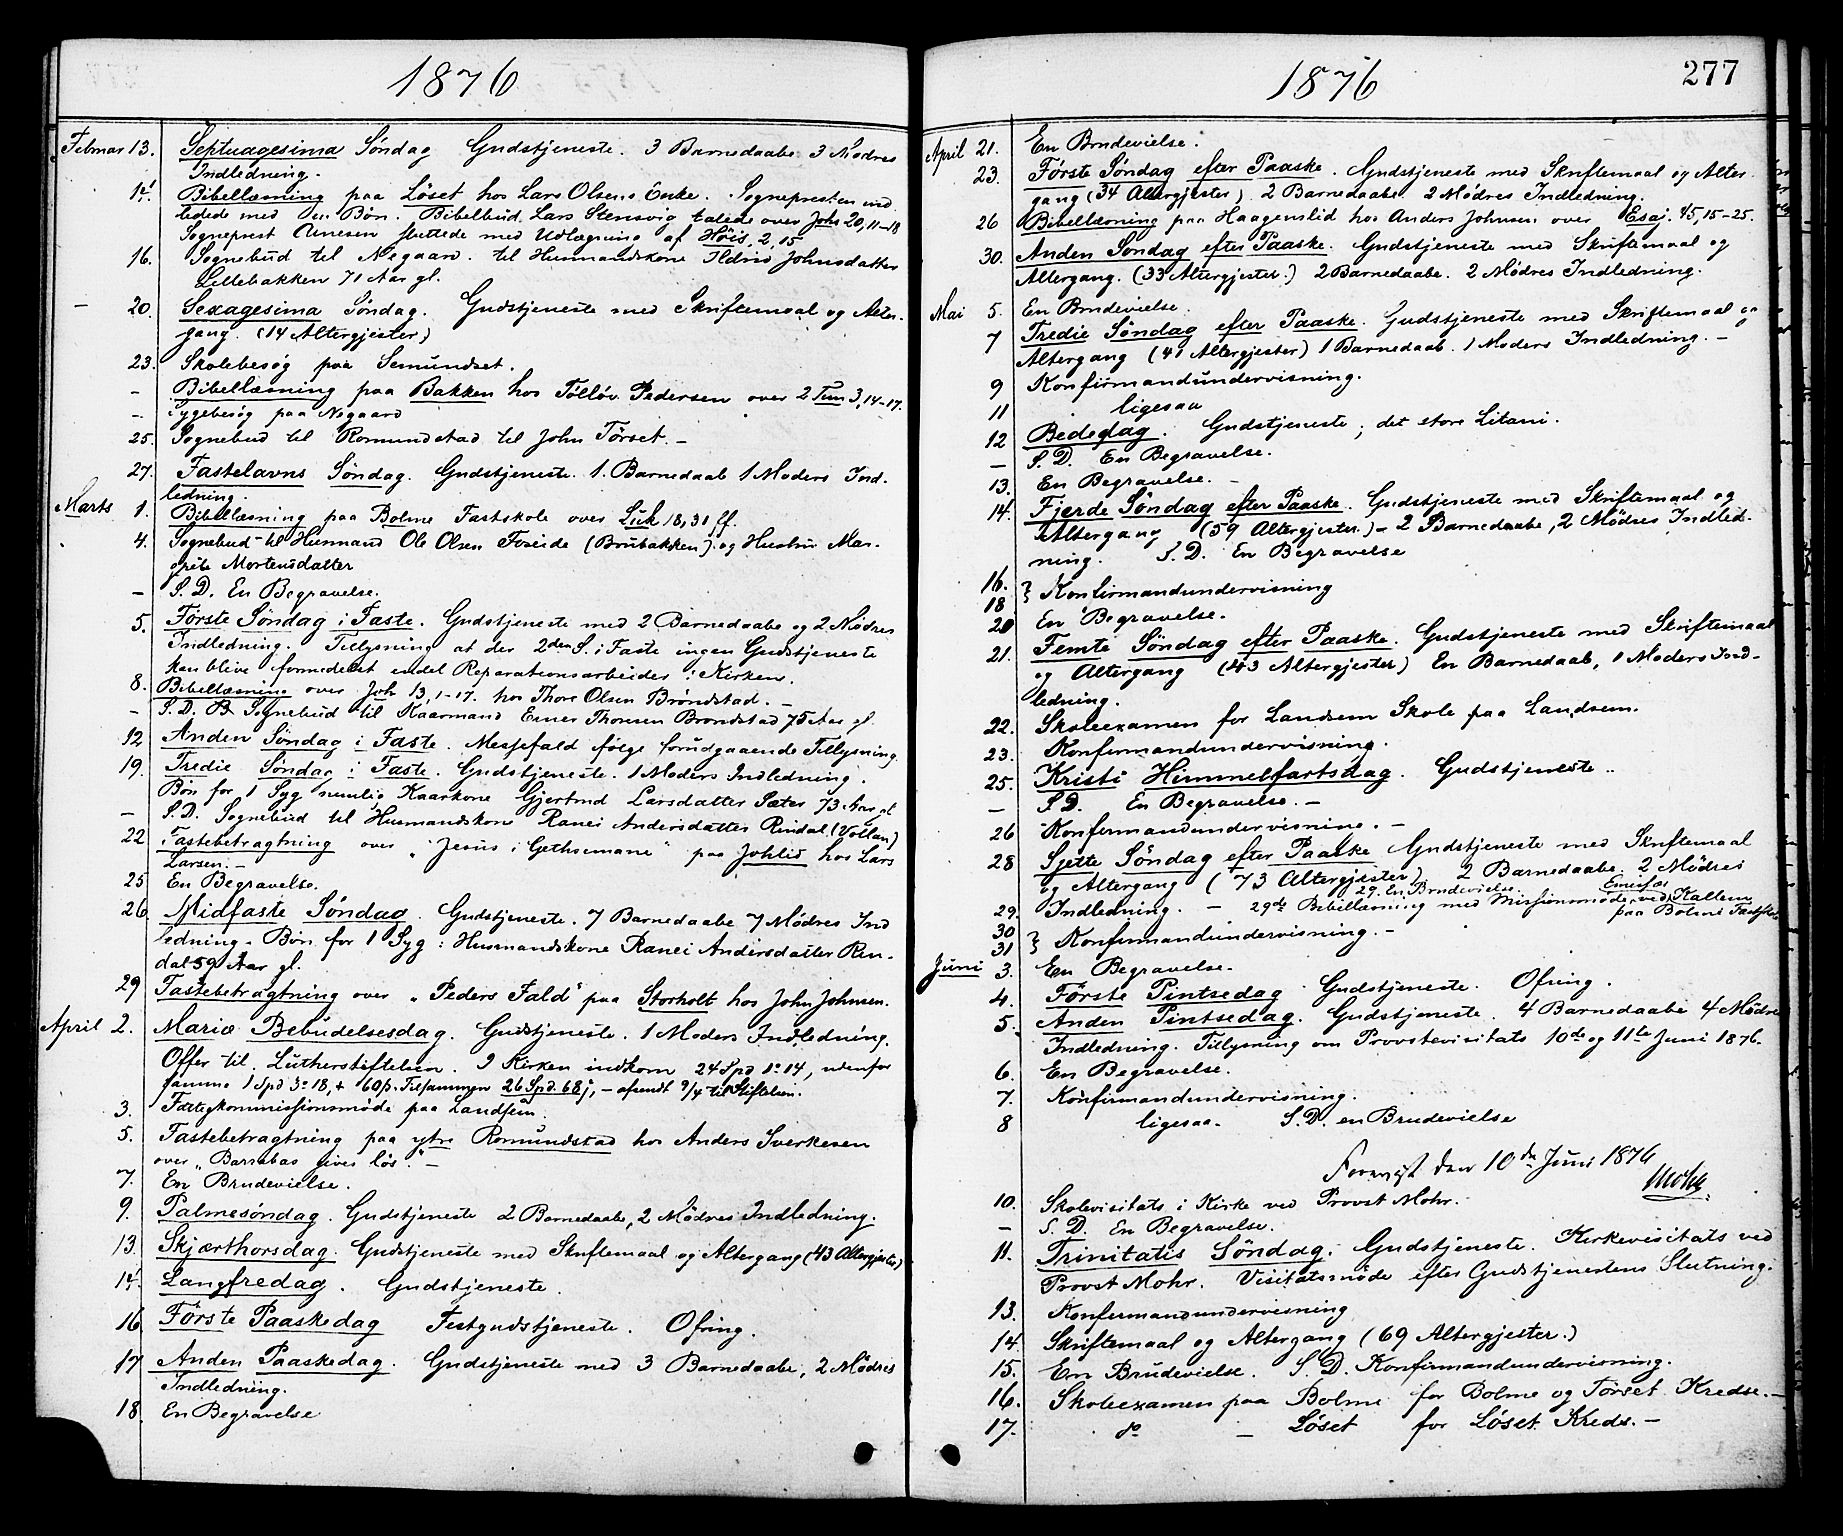 1876
Februar 13. Septuagesima Søndag Gudstjeneste. 3 Barnedaabe 3 Mødres
Indledning.
14. Bibellæsning paa Løset hos Lars Olsens Enke. Sognepresten ind
ledede med en Bøn. Bibelbud Lars Stensvig talede over Joh 20, 11-18
Sogneprest sluttede med Udlægning af Høis. 2, 15
16. Sognebud til Negaard. til Husmandskone Ildrid Johnsdatter
Lillebakken 71 Aar gl.
— 20. Sexagesima Søndag. Gudstjeneste med Skriftemaal og Alter-
gang. (14 Altergjester)
23. Skolebesøg paa Semundset.
- Bibellæsning paa Bakken hos Tølløv Pedersen over 2 Tim 3, 14-17.
- Sygebesøg paa Negaard
25. Sognebud til Romundstad til John Tørset. -
27. Fastelavns Søndag. Gudstjeneste. 1. Barnedaab 1 Moders Ind-
ledning.
Marts 1. Bibellæsning paa Bolme Fastskole over Luk 18, 31 ff.
4. Sognebud til Husmand Ole Olsen Foseide (Brubakken) og Hustru Mar-
grete Mortensdatter
- S. D. En Begravelse.
5. Første Søndag i Faste. Gudstjeneste med 2 Barnedaabe og 2 Mødres
Indledning. Tillysning at der 2den S. i Faste ingen Gudstjeneste
kan blive formedelst endel Reparationsarbeider i Kirken.
8. Bibellæsning over Joh 13, 1-17. hos Thore Olsen Brøndstad. -
- S. D. Sognebud til Kaarmand Thorsen Brøndstad 75 Aar gl.
12 Anden Søndag i Faste. Messefald følge forudgaaende Tillysning
19. Tredie Søndag i Faste. Gudstjeneste. 1 Moders Indledning.
Bøn for 1 Syg nemlig Kaarkone Gjertrud Larsdatter Sæter 73 Aar gl
- S. D. Sognebud til Husmandskone Ranei Andersdatter Rindal (Vollan)
22 Fastebetragtning over "Jesus i Gethsemane" paa Johlid hos Lars
Larsen. -
25 En Begravelse.
26. Midfaste Søndag. Gudstjeneste. 7 Barnedaabe 7 Mødres Ind
ledning. Bøn for 1 Syg: Husmandskone Ranei Andersdatter Rin-
dal 59 Aar gl.
29 Fastebetragtning over "Peders Fald" paa Storholt hos John Johnsen.
April 2. Mariæ Bebudelsesdag. Gudstjeneste. 1 Moders Indledning.
Offer til Lutherstiftelsen. I Kirken indkom 24 Spd 1 o 14, udenfor
samme 1 Spd 3 o 18, + 60 β. Tilsammen 26 Spd. 68 β, - afsendt 9/4 til Stiftelsen.
3. Fattigkommissionsmøde paa Landsem.
5. Fastebetragtning paa ytre Romundstad hos Anders Sverkesen
over "Barrabas gives løs". -
7. En Brudevielse.
9. Palmesøndag. Gudstjeneste 2 Barnedaabe, 2 Mødres Indledning.
13. Skjærthorsdag. Gudstjeneste med Skriftemaal og Altergang (43 Altergjester)
14. Langfredag. Gudstjeneste.
16 Første Paaskedag Festgudstjeneste. Ofring.
17 Anden Paaskedag. Gudstjeneste med 3 Barnedaabe, 2 Mødres
Indledning.
18. En Begravelse
1876
277
April 21. En Brudevielse.
23. Første Søndag efter Paaske. Gudstjeneste med Skriftemaal og Alter-
gang (34 Altergjester) 2 Barnedaabe 2 Mødres Indledning.
26 Bibellæsning paa Haagenslid hos Anders Johnsen over Esaj. 45, 15-25.
30. Anden Søndag efter Paaske. Gudstjeneste med Skriftemaal og
Altergang. (33 Altergjester.) 2 Barnedaabe. 2 Mødres Indledning.
Mai 5. En Brudevielse.
7 Tredie Søndag efter Paaske. Gudstjeneste med Skriftemaal og
Altergang (41 Altergjester) 1 Barnedaab. 1 Moders Indledning. -
9 Konfirmandundervisning.
11 ligesaa
12 Bededag. Gudstjeneste; det store Litani.
— S. D. En Begravelse.
13. En Begravelse. -
14. Fjerde Søndag efter Paaske. Gudstjeneste med Skriftemaal og
Altergang (59 Altergjester.) - 2 Barnedaabe, 2 Mødres Indled-
ning. S. D. En Begravelse
16.
18 } Konfirmandundervisning
20 En Begravelse.
21. Femte Søndag efter Paaske. Gudstjeneste med Skriftemaal
og Altergang (43 Altergjester) En Barnedaab, 1 Moders Ind-
ledning.
22. Skoleexamen for Landsem Skole paa Landsem.
23. Konfirmandundervisning.
25. Kristi Himmelfartsdag. Gudstjeneste.
— S. D. En Begravelse. -
26 Konfirmandundervisning. -
28 Sjette Søndag efter Paaske Gudstjeneste med Skriftemaal
og Altergang (73 Altergjester) 2 Barnedaabe. 2 Mødres
29. En Brudevielse. Emissær
29. Indledning. - 29de Bibellæsning med Missionsmøde ved Kallem
paa Bolme Fastskole
30
31 } Konfirmandundervisning. -
Juni 3. En Begravelse.
4. Første Pintsedag. Gudstjeneste. Ofring.
5. Anden Pintsedag. Gudstjeneste. 4 Barnedaabe 4 Mødres
Indledning. Tillysning om Provstevisitats 10de og 11te Juni 1876.
6. En Begravelse.
7. Konfirmandundervisning.
8 ligesaa. S. D. en Brudevielse
Forevist den 10de Juni 1876
Mohr.
10. Skolevisitats i Kirke ved Provst Mohr.
— S. D. En Begravelse.
11. Trinitatis Søndag. Gudstjeneste. Kirkevisitats ved
Provst Mohr. Visitatsmøde efter Gudstjenestens Slutning.
13. Konfirmandundervisning
14. Skriftemaal og Altergang (69 Altergjester.)
15. En Brudevielse. S. D. Konfirmandundervisning.
16. Skoleexamen paa Bolme for Bolme og Tørset Kredse. -
17. do — Løset for Løset Kreds. -